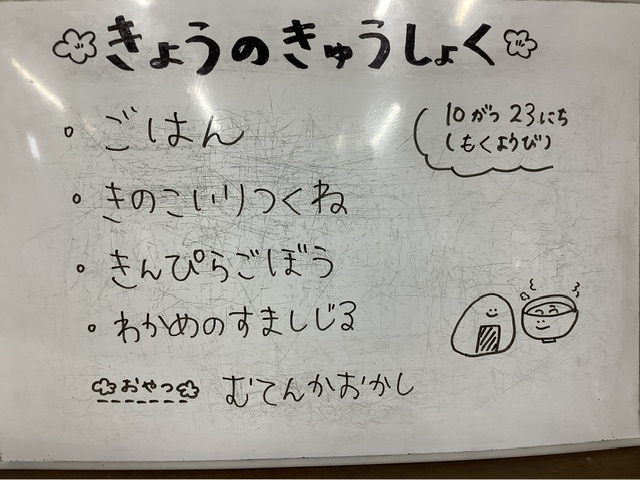 きょうのきゅうしょく
10がつ23にち
(もくようび)
ごはん
きのこいりつくね
きんぴらごぼう
わかめのすましじる
おやつ むてんかおかし